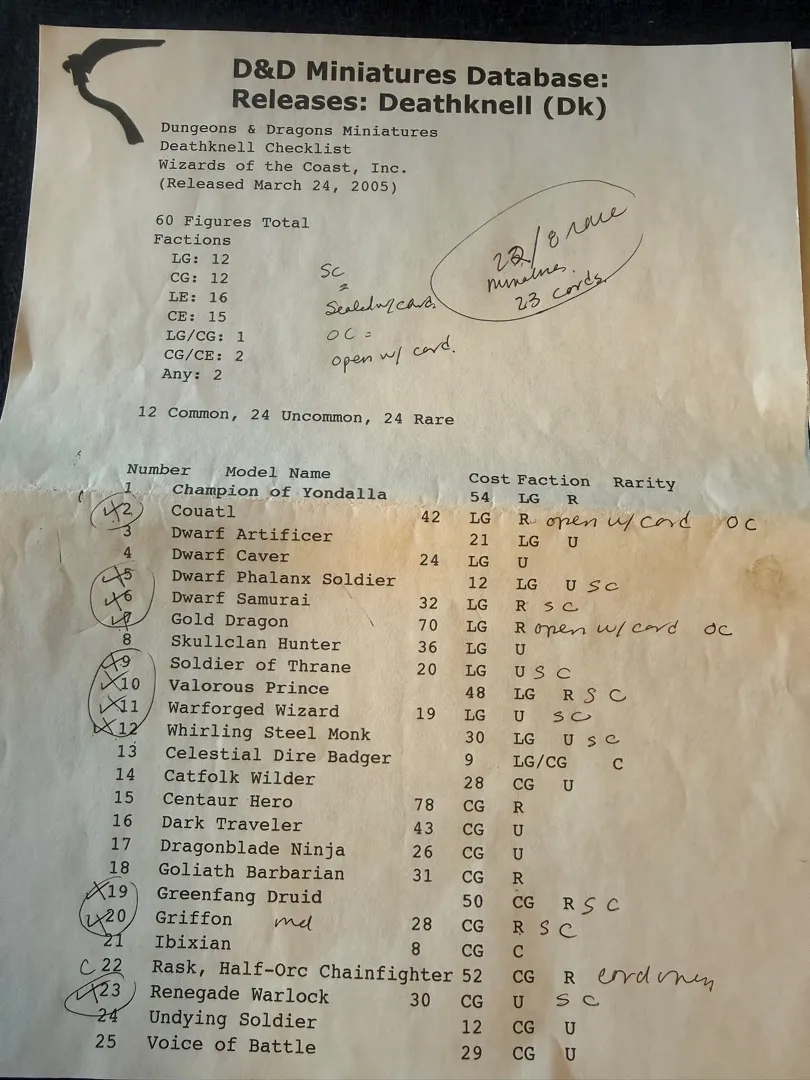 D&D Miniatures Database:
Releases: Deathknell (Dk)
Dungeons & Dragons Miniatures
Deathknell Checklist
Wizards of the Coast, Inc.
(Released March 24, 2005)
22/8 rare
23 cards.
60 Figures Total
Factions
LG: 12
CG: 12
LE: 16
CE: 15
LG/CG: 1
CG/CE: 2
Any: 2
SC
=
Sealed w/card.
OC =
open w/ card.
12 Common, 24 Uncommon, 24 Rare
Number Model Name Cost Faction Rarity
1 Champion of Yondalla 54 LG R
X2 Couatl 42 LG R open w/ card OC
3 Dwarf Artificer 21 LG U
4 Dwarf Caver 24 LG U
X5 Dwarf Phalanx Soldier 12 LG U SC
X6 Dwarf Samurai 32 LG R SC
X7 Gold Dragon 70 LG R open w/ card OC
8 Skullclan Hunter 36 LG U
X9 Soldier of Thrane 20 LG U SC
X10 Valorous Prince 48 LG R SC
X11 Warforged Wizard 19 LG U SC
X12 Whirling Steel Monk 30 LG U SC
13 Celestial Dire Badger 9 LG/CG C
14 Catfolk Wilder 28 CG U
15 Centaur Hero 78 CG R
16 Dark Traveler 43 CG U
17 Dragonblade Ninja 26 CG U
18 Goliath Barbarian 31 CG R
X19 Greenfang Druid 50 CG R SC
X20 Griffon 28 CG R SC
21 Ibixian 8 CG C
C 22 Rask, Half-Orc Chainfighter 52 CG R card only
X23 Renegade Warlock 30 CG U SC
24 Undying Soldier 12 CG U
25 Voice of Battle 29 CG U